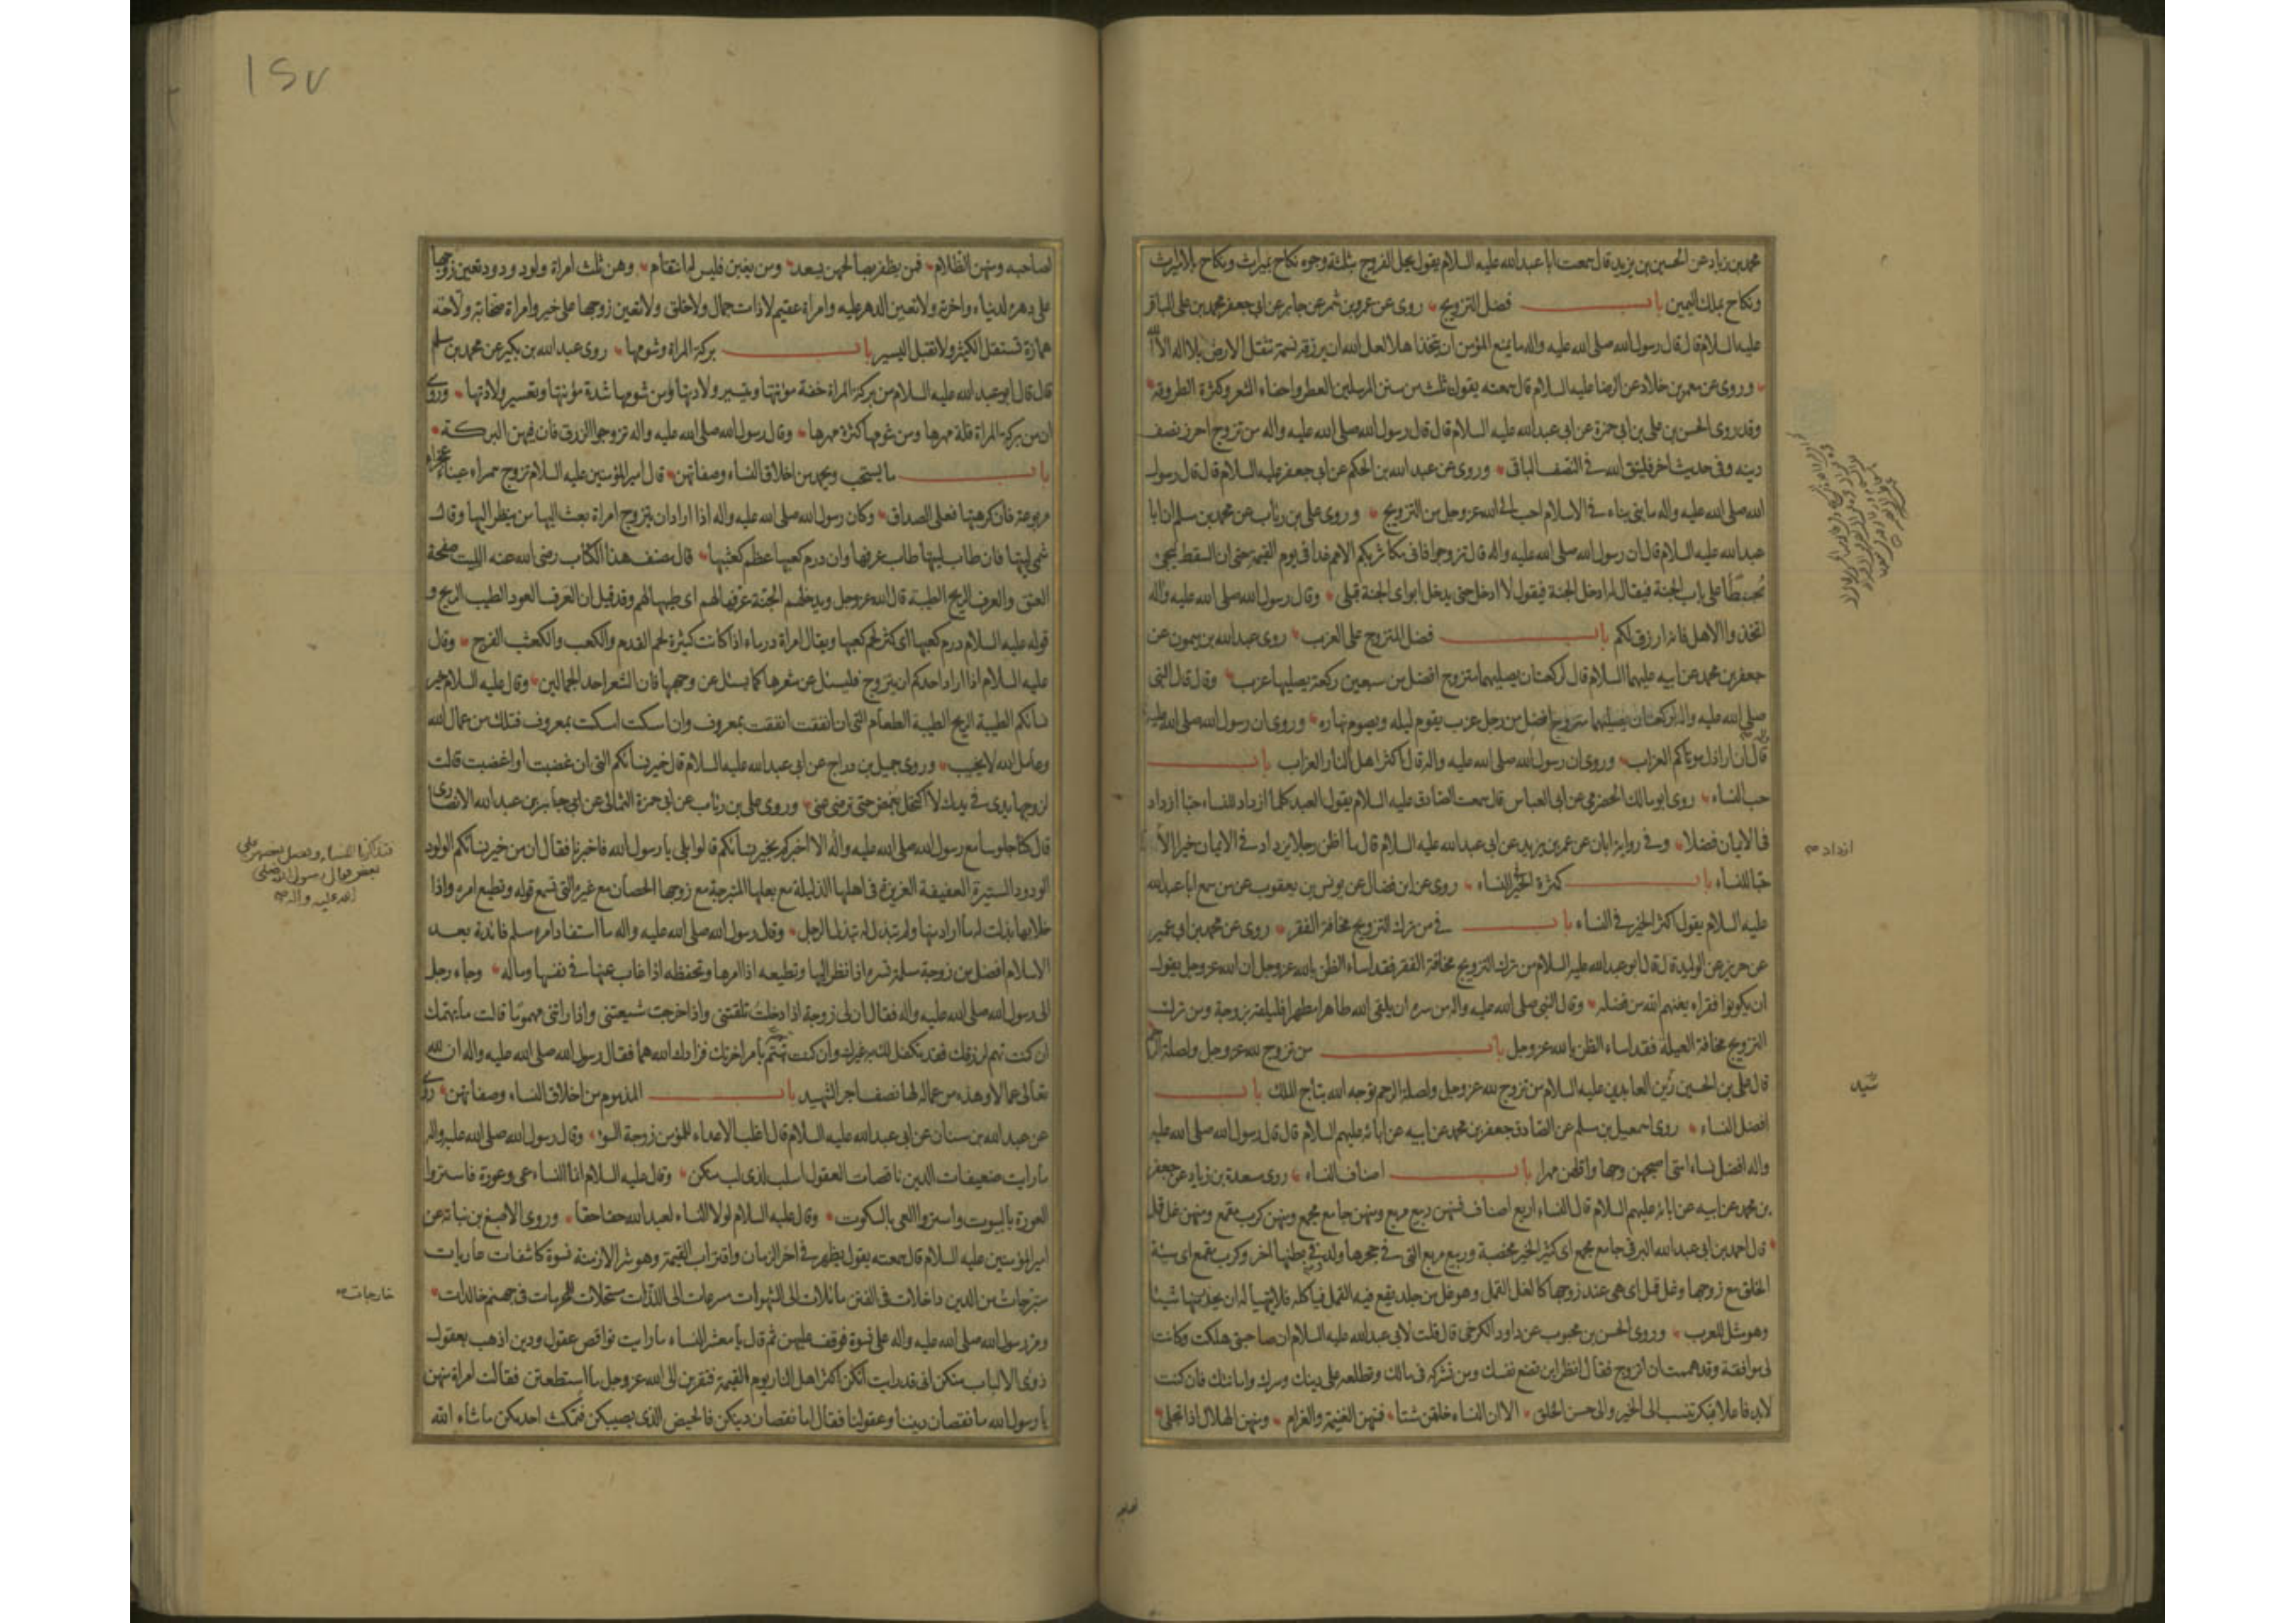 محمد بن زياد عن الحسين بن يزيد قال سمعت ابا عبدالله عليه السلام يقول يحل الفروج بثلثة وجوه نكاح بميراث ونكاح بلاميراث
ونكاح بملك اليمين باب فضل التزويج روى عن عمرو بن شمر عن جابر عن ابى جعفر محمد بن على الباقر
عليه السلام قال قال رسول الله صلى الله عليه واله ما يمنع المؤمن ان يتخذ اهلا لعل الله ان يرزقه نسمة تثقل الارض بلا اله الا الله
وروى عن معمر بن خلاد عن الرضا عليه السلام قال سمعته يقول ثلث من سنن المرسلين العطر واحفاء الشعر وكثرة الطروقة
وقد روى الحسن بن على بن ابى حمزة عن ابى عبدالله عليه السلام قال قال رسول الله صلى الله عليه واله من تزوج احرز نصف
دينه وفى حديث اخر فليتق الله فى النصف الباقى وروى عن عبد الله بن الحكم عن ابى جعفر عليه السلام قال قال رسول
الله صلى الله عليه واله ما بنى بناء فى الاسلام احب الى الله عز وجل من التزويج وروى على بن رئاب عن محمد بن مسلم ان ابا
عبدالله عليه السلام قال ان رسول الله صلى الله عليه واله قال تزوجوا فانى مكاثر بكم الامم غدا فى يوم القيمة حتى ان السقط ليجئ
محبنطئا على باب الجنة فيقال له ادخل الجنة فيقول لا ادخل حتى يدخل ابواى الجنة قبلى وقال رسول الله صلى الله عليه واله
اتخذوا الاهل فانه ارزق لكم باب فضل المتزوج على العزب روى عبدالله بن ميمون عن
جعفر بن محمد عن ابيه عليهما السلام قال لركعتان يصليهما متزوج افضل من سبعين ركعة يصليها عزب وقال قال النبى
صلى الله عليه واله لركعتان يصليهما متزوج افضل من رجل عزب يقوم ليله ويصوم نهاره وروى ان رسول الله صلى الله عليه
قال ان اراذل موتاكم العزاب وروى ان رسول الله صلى الله عليه واله قال اكثر اهل النار العزاب باب
حب النساء روى ابو مالك الحضرمى عن ابى العباس قال سمعت الصادق عليه السلام يقول العبد كلما ازداد للنساء حبا ازداد
فى الايمان فضلا وفى رواية ابان عن عمر بن يزيد عن ابى عبدالله عليه السلام قال ما اظن رجلا يزداد فى الايمان خيرا الا
حبا للنساء باب كثرة الخير فى النساء روى عن ابن فضال عن يونس بن يعقوب عن من سمع ابا عبدالله
عليه السلام يقول اكثر الخير فى النساء باب فى من ترك التزويج مخافة الفقر روى عن محمد بن ابى عمير
عن حريز عن الوليد قال قال ابو عبدالله عليه السلام من ترك التزويج مخافة الفقر فقد اساء الظن بالله عز وجل ان الله عز وجل يقول
ان يكونوا فقراء يغنهم الله من فضله وقال النبى صلى الله عليه واله من سره ان يلقى الله طاهرا مطهرا فليلقه بزوجة ومن ترك
التزويج مخافة العيلة فقد اساء الظن بالله عز وجل باب من تزوج لله عز وجل ولصلة الرحم
قال على بن الحسين زين العابدين عليه السلام من تزوج لله عز وجل ولصلة الرحم توجه الله بتاج الملك باب
افضل النساء روى اسمعيل بن مسلم عن الصادق جعفر بن محمد عن ابيه عن ابائه عليهم السلام قال قال رسول الله صلى الله عليه
واله افضل نساء امتى اصبحهن وجها واقلهن مهرا باب اصناف النساء روى مسعدة بن زياد عن جعفر
بن محمد عن ابيه عن ابائه عليهم السلام قال النساء اربع اصناف فمنهن ربيع مربع ومنهن جامع مجمع ومنهن كرب مقمع ومنهن غل قمل
قال احمد بن ابى عبدالله البرقى جامع مجمع اى كثير الخير مخصبة وربيع مربع التى فى حجرها ولد وفى بطنها اخر وكرب مقمع اى سيئة
الخلق مع زوجها وغل قمل اى هى عند زوجها كالغل القمل وهو غل من جلد يقع فيه القمل فياكله فلا يتهيأ له ان يحذر منها شيئا
وهو مثل للعرب وروى الحسن بن محبوب عن داود الكرخى قال قلت لابى عبدالله عليه السلام ان صاحبتى هلكت وكانت
لى موافقة وقد هممت ان اتزوج فقال انظر اين تضع نفسك ومن تشركه فى مالك وتطلعه على دينك وسرك وامانتك فان كنت
لابد فاعلا فبكر تنسب الى الخير والى حسن الخلق الا ان النساء خلقن شتى فمنهن الغنيمة والغرام ومنهن الهلال اذا تجلى
ازداد صح
سيد
١٥٧
لصاحبه ومنهن الظلام فمن يظفر بصالحهن يسعد ومن يغبن فليس له انتقام وهن ثلث امراة ولود ودود تعين زوجها
على دهره لدنياه واخرته ولا تعين الدهر عليه وامراة عقيم لا ذات جمال ولا خلق ولا تعين زوجها على خير وامراة صخابة ولاجة
همازة تستقل الكثير ولا تقبل اليسير باب بركة المراة وشومها روى عبدالله بن بكير عن محمد بن مسلم
قال قال ابو عبدالله عليه السلام من بركة المراة خفة مؤنتها وتيسير ولادتها ومن شومها شدة مؤنتها وتعسير ولادتها وروى
ان من بركة المراة قلة مهرها ومن شومها كثرة مهرها وقال رسول الله صلى الله عليه واله تزوجوا الزرق فان فيهن البركة
باب ما يستحب ويحمد من اخلاق النساء وصفاتهن قال امير المؤمنين عليه السلام تزوج سمراء عيناء عجزاء
مربوعة فان كرهتها فعلى الصداق وكان رسول الله صلى الله عليه واله اذا اراد ان يتزوج امراة بعث اليها من ينظر اليها وقال
شمى ليتها فان طاب ليتها طاب عرفها وان درم كعبها عظم كعثبها قال مصنف هذا الكتاب رضى الله عنه الليت صفحة
العنق والعرف الريح الطيبة قال الله عز وجل ويدخلهم الجنة عرفها لهم اى طيبها لهم وقد قيل ان العرف العود الطيب الريح و
قوله عليه السلام درم كعبها اى كثر لحم كعبها ويقال امراة درماء اذا كانت كثيرة لحم القدم والكعب والكعثب الفرج وقال
عليه السلام اذا اراد احدكم ان يتزوج فليسئل عن شعرها كما يسئل عن وجهها فان الشعر احد الجمالين وقال عليه السلام خير
نسائكم الطيبة الريح الطيبة الطعام التى ان انفقت انفقت بمعروف وان امسكت امسكت بمعروف فتلك من عمال الله
وعامل الله لا يخيب وروى جميل بن دراج عن ابى عبدالله عليه السلام قال خير نسائكم التى ان غضبت او اغضبت قالت
لزوجها يدى فى يدك لا اكتحل بغمض حتى ترضى عنى وروى على بن رئاب عن ابى حمزة الثمالى عن جابر بن عبدالله الانصارى
قال كنا جلوسا مع رسول الله صلى الله عليه واله الا اخبركم بخير نسائكم قالوا بلى يا رسول الله فاخبرنا فقال ان من خير نسائكم الولود
الودود الستيرة العفيفة العزيزة فى اهلها الذليلة مع بعلها المتبرجة مع زوجها الحصان مع غيره التى تسمع قوله وتطيع امره واذا
خلا بها بذلت له ما اراد منها ولم تبذل له تبذل الرجل وقال رسول الله صلى الله عليه واله ما استفاد امرء مسلم فائدة بعد
الاسلام افضل من زوجة مسلمة تسره اذا نظر اليها وتطيعه اذا امرها وتحفظه اذا غاب عنها فى نفسها وماله وجاء رجل
الى رسول الله صلى الله عليه واله فقال ان لى زوجة اذا دخلت تلقتنى واذا خرجت شيعتنى واذا راتنى مهموما قالت ما يهمك
ان كنت تهتم لرزقك فقد تكفل لك به غيرك وان كنت تهتم بامر اخرتك فزادك الله هما فقال رسول الله صلى الله عليه واله ان لله
تعالى عمالا وهذه من عماله لها نصف اجر الشهيد باب المذموم من اخلاق النساء وصفاتهن روى
عن عبدالله بن سنان عن ابى عبدالله عليه السلام قال اغلب الاعداء للمؤمن زوجة السوء وقال رسول الله صلى الله عليه واله
ما رايت ضعيفات الدين ناقصات العقول اسلب لذى لب منكن وقال عليه السلام انما النساء عى وعورة فاستروا
العورة بالبيوت واستروا العى بالسكوت وقال عليه السلام لولا النساء لعبد الله حقا حقا وروى الاصبغ بن نباتة عن
امير المؤمنين عليه السلام قال سمعته يقول يظهر فى اخر الزمان واقتراب القيمة وهو شر الازمنة نسوة كاشفات عاريات
متبرجات من الدين داخلات فى الفتن مائلات الى الشهوات مسرعات الى اللذات مستحلات للمحرمات فى جهنم خالدات
ومر رسول الله صلى الله عليه واله على نسوة فوقف عليهن ثم قال يا معشر النساء ما رايت نواقص عقول ودين اذهب بعقول
ذوى الالباب منكن انى قد رايت انكن اكثر اهل النار يوم القيمة فتقربن الى الله عز وجل ما استطعتن فقالت امراة منهن
يا رسول الله ما نقصان ديننا وعقولنا فقال اما نقصان دينكن فالحيض الذى يصيبكن فتمكث احدكن ما شاء الله
فتذاكرنا النساء وفضل بعضهن على
بعض فقال رسول الله صلى
الله عليه واله صح
خارجات صح